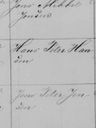 Jens Mikkel
Jensen
Hans Peter Han
sen
Jens Peter Jen
sen